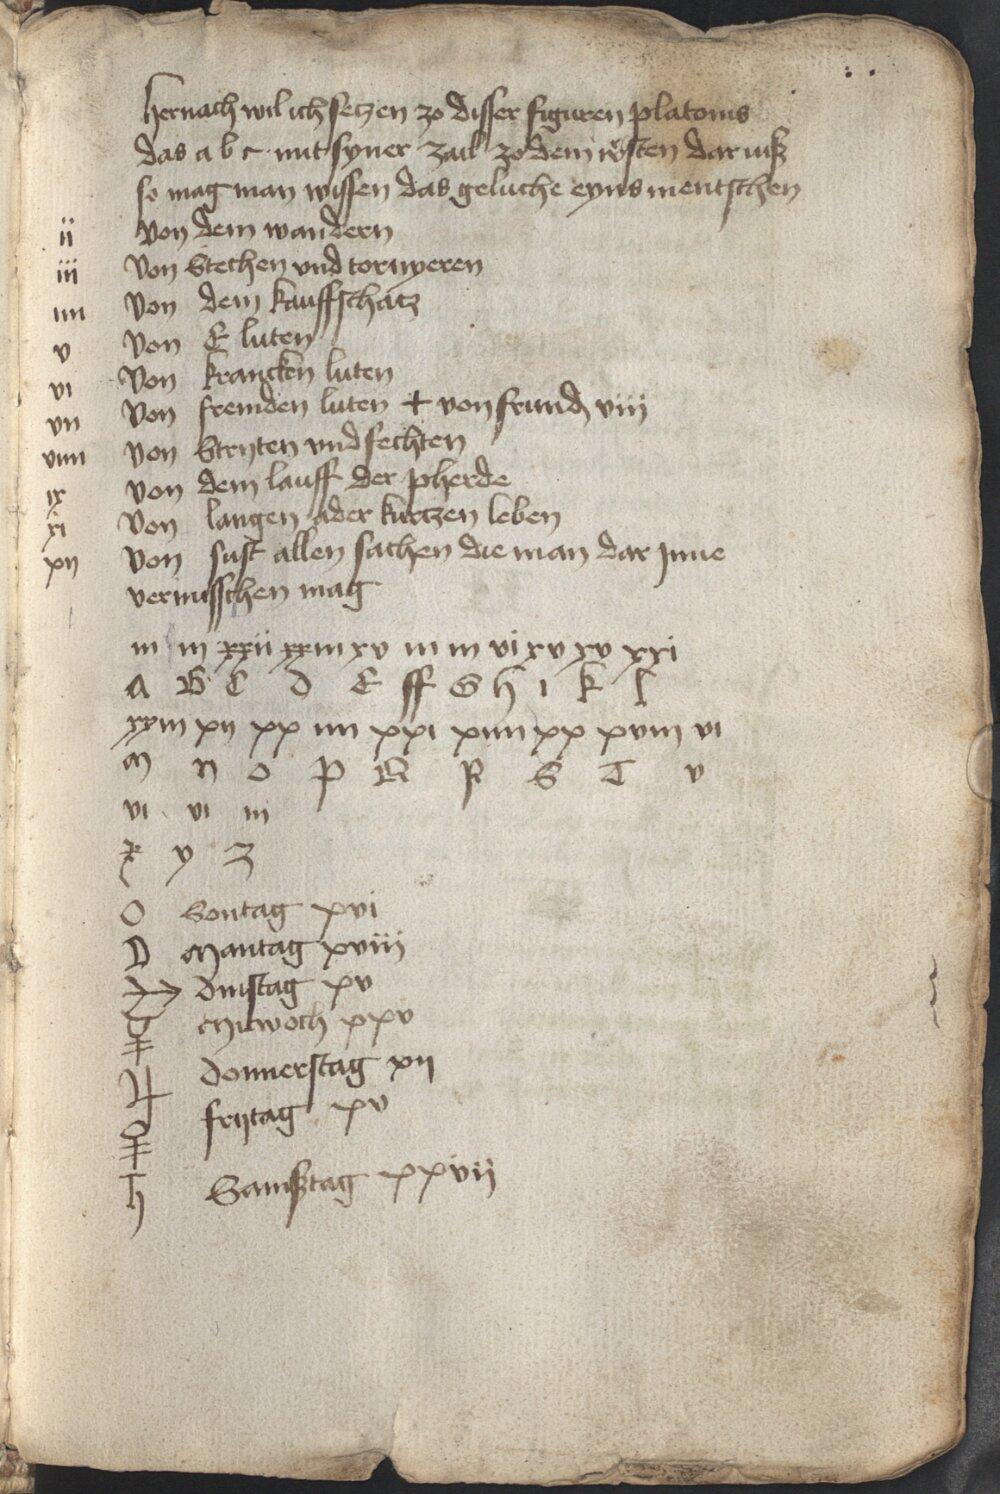 hernach wil ich setzen zo disser figuren platonis
das a b c mit syner zail zo dem ersten dar uß
so mag man wissen das geluche eyns mentschen
ii von dem wandern
iii von Stechen vnd tornyeren
iiii von dem kauffschatz
v von E luten
vi von krancken luten
vii von fremden luten + von frund viii
viiii von Stryten vnd fechten
ix von dem lauff der pherde
xi von langen ader kurtzen leben
xii von sust allen sachen die man dar Jnne
vermisschen mag
iii iii xxii xxiii xv iii iii vi xv xv xxi
A B C D E ff G h i k l
xxiii xii xx iiii xxi xiiii xx xviii vi
M n o p R S T v
vi vi iii
x y z
Sontag xvi
Mantag xviii
Dinstag xv
Mitwoch xxv
Donnerstag xii
frytag xv
Samßtag xxvii